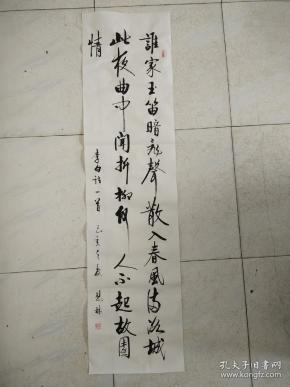 誰家玉笛暗飛聲散入春風滿洛城
此夜曲中聞折柳何人不起故園
情
李白诗一首 己亥年春
孔夫子旧书网